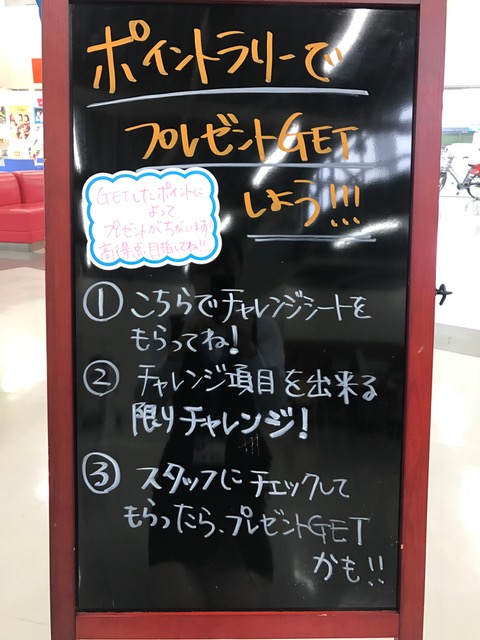 ポイントラリーで
プレゼントGET
しよう!!!
GETしたポイントに
よって
プレゼントがちがいます
高得点目指してね!!
① こちらでチャレンジシートを
もらってね!
② チャレンジ項目を出来る
限りチャレンジ!
③ スタッフにチェックして
もらったら、プレゼントGET
かも!!